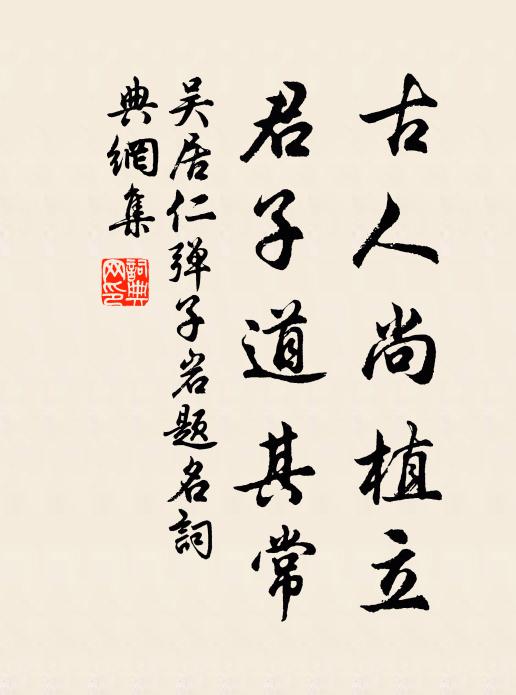 古人尚植立
君子道其常
吴居仁弹子岩题名詞
典網集
詞典
网印